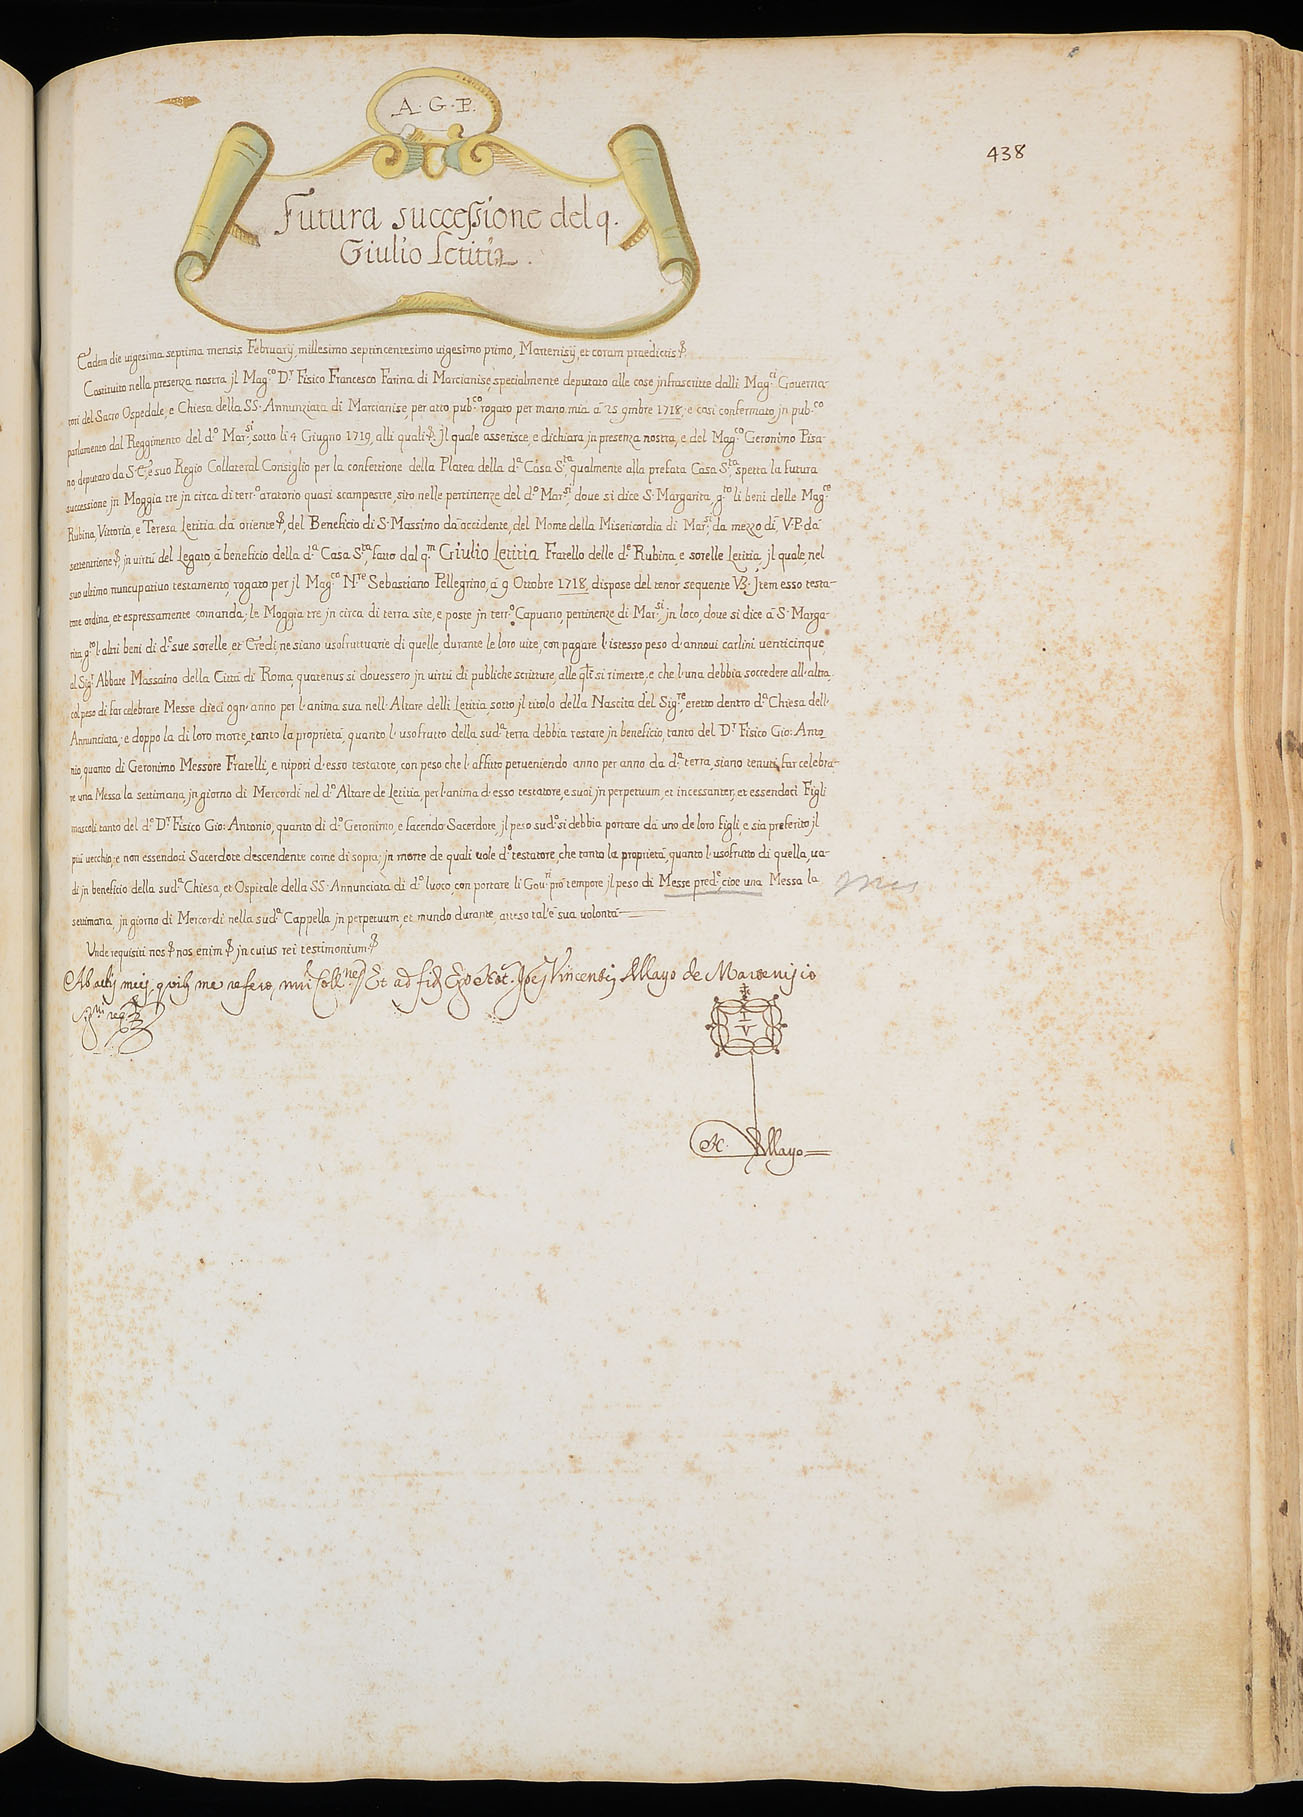 A. G. P.
438
Futura successione del q.
Giulio Letitia.
Eadem die vigesima septima mensis Februarij millesimo septincentesimo vigesimo primo, Martenisij, et coram praedictis
Costituito nella presenza nostra jl Mag.co D.r Fisico Francesco Farina di Marcianise, specialmente deputato alle cose jnfrascritte dalli Mag.ci Governa-
tori del Sacro Ospedale, e Chiesa della SS. Annunziata di Marcianise, per atto pub.co rogato per mano mia à 25 9mbre 1718, e così confermato jn pub.co
parlamento dal Reggimento del d.o Mar.si sotto li 4 Giugno 1719, alli quali jl quale asserisce, e dichiara jn presenza nostra, e del Mag.co Geronimo Pisa-
no deputato da S.E., e suo Regio Collateral Consiglio per la confettione della Platea della d.a Casa S.ta qualmente alla prefata Casa S.ta spetta la futura
successione jn Moggia tre jn circa di terr.o aratorio quasi scampestre, sito nelle pertinenze del d.o Mar.si, doue si dice S. Margarita, g.to li beni delle Mag.ce
Rubina, Vittoria, e Teresa Letitia da oriente, del Beneficio di S. Massimo da occidente, del Monte della Misericordia di Mar.si da mezzo dì, V.P. da
settentrione, jn virtù del Legato, à beneficio della d.a Casa S.ta fatto dal q.m Giulio Letitia Fratello delle d.e Rubina, e sorelle Letitia, jl quale, nel
suo ultimo nuncupativo testamento, rogato per jl Mag.co N.re Sebastiano Pellegrino, à 9 Ottobre 1718, dispose del tenor sequente V3. Jtem esso testa-
tore ordina, et espressamente comanda, le Moggia tre jn circa di terra site, e poste jn terr.o Capuano, pertinenze di Mar.si jn loco, doue si dice à S. Marga-
rita g.to l'altri beni di d.e sue sorelle, et Eredi, ne siano usofruttuarie di quelle, durante le loro vite, con pagare l'istesso peso d'annovi carlini venticinque
al Sig.r Abbate Massaino della Città di Roma, quatenus si douessero jn virtù di publiche scritture, alle qli si rimette, e che l'una debbia soccedere all'altra
col peso di far celebrare Messe dieci ogn'anno per l'anima sua nell'Altare delli Letitia, sotto jl titolo della Nascita del Sig.re, eretto dentro d.a Chiesa dell'
Annunciata, e doppo la di loro morte, tanto la proprietà, quanto l'usofrutto della sud.a terra debbia restare jn beneficio, tanto del D.r Fisico Gio: Anto-
nio, quanto di Geronimo Messore Fratelli, e nipoti d'esso testatore, con peso che l'affitto perveniendo anno per anno da d.a terra, siano tenuti far celebra-
re una Messa la settimana, jn giorno di Mercordi nel d.o Altare de Letitia, per l'anima d'esso testatore, e suoi jn perpetuum, et incessanter, et essendoci Figli
mascoli tanto del d.o D.r Fisico Gio: Antonio, quanto di d.o Geronimo, e facendo Sacerdote, jl peso sud.o si debbia portare da uno de loro figli, e sia preferito jl
più vecchio, e non essendoci Sacerdote descendente come di sopra, jn morte de quali vole d.o testatore, che tanto la proprietà, quanto l'usofrutto di quella, va-
di jn beneficio della sud.a Chiesa, et Ospitale della SS. Annunciata di d.o luoco, con portare li Gov.ri pro tempore jl peso di Messe pred.e, cioe una Messa la
settimana, jn giorno di Mercordi nella sud.a Cappella jn perpetuum, et mundo durante, atteso tal'è sua volontà
Unde requisiti nos nos enim jn cuius rei testimonium
Ab actis meis, quibs me refero, Et ad fid Ego Not. Vincentij Allayo de Martenisio
req.
I V
N. Allayo